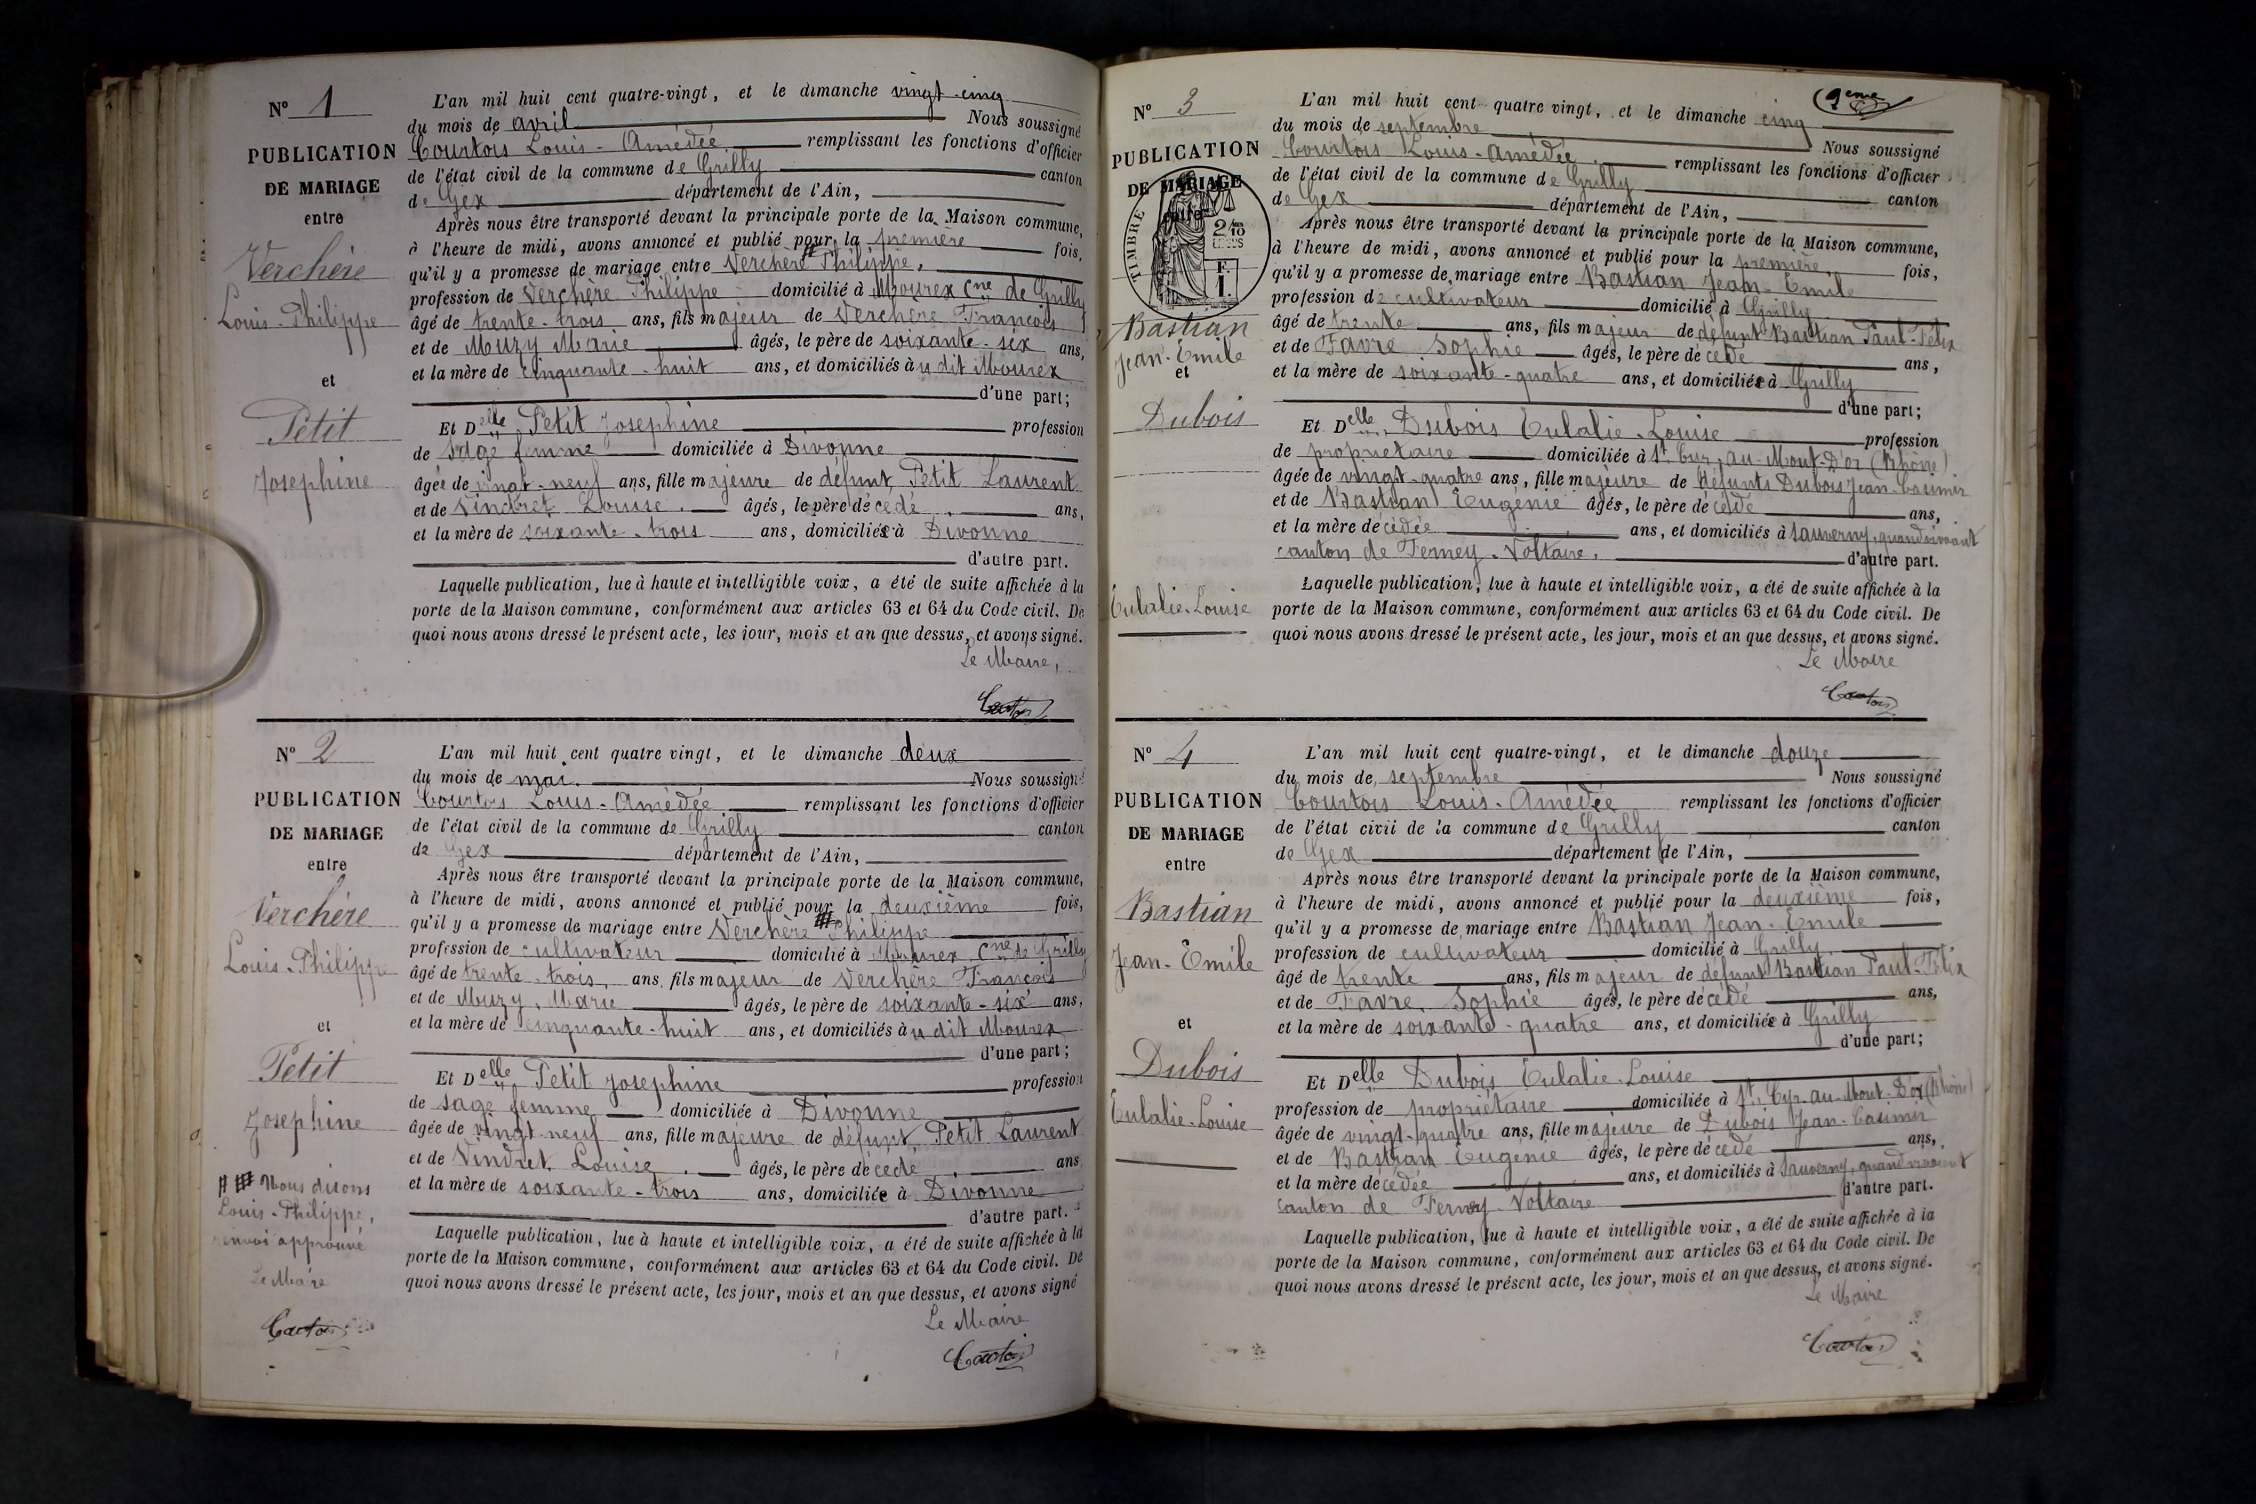 N° 1
PUBLICATION
DE MARIAGE
entre
Verchère
Louis-Philippe
et
Petit
Josephine
L'an mil huit cent quatre-vingt, et le dimanche vingt-cinq
du mois de avril Nous soussigné
Courtois Louis-Amédée remplissant les fonctions d'officier
de l'état civil de la commune de Grilly canton
de Gex département de l'Ain,
Après nous être transporté devant la principale porte de la Maison commune,
à l'heure de midi, avons annoncé et publié pour la première fois,
qu'il y a promesse de mariage entre Verchère # Philippe,
profession de Verchère Philippe domicilié à Mourex Cne de Grilly
âgé de trente-trois ans, fils majeur de Verchère François
et de Muzy Marie âgés, le père de soixante-six ans,
et la mère de cinquante-huit ans, et domiciliés à u dit Mourex
d'une part;
Et Delle Petit Josephine profession
de sage femme domiciliée à Divonne
âgée de vingt-neuf ans, fille majeure de défunt Petit Laurent
et de Vindret Louise. âgés, le père décédé ans,
et la mère de soixante-trois ans, domiciliée à Divonne
d'autre part.
Laquelle publication, lue à haute et intelligible voix, a été de suite affichée à la
porte de la Maison commune, conformément aux articles 63 et 64 du Code civil. De
quoi nous avons dressé le présent acte, les jour, mois et an que dessus, et avons signé.
Le Maire,
Courtois
N° 2
PUBLICATION
DE MARIAGE
entre
Verchère
Louis-Philippe
et
Petit
Josephine
Nous disons
Louis-Philippe,
renvoi approuvé
Le Maire
Courtois
L'an mil huit cent quatre vingt, et le dimanche deux
du mois de mai. Nous soussigné
Courtois Louis-Amédée remplissant les fonctions d'officier
de l'état civil de la commune de Grilly canton
de Gex département de l'Ain,
Après nous être transporté devant la principale porte de la Maison commune,
à l'heure de midi, avons annoncé et publié pour la deuxième fois,
qu'il y a promesse de mariage entre Verchère # Philippe
profession de cultivateur domicilié à Mourex Cne de Grilly
âgé de trente-trois, ans, fils majeur de Verchère François
et de Muzy, Marie âgés, le père de soixante-six ans,
et la mère de cinquante-huit ans, et domiciliés à u dit Mourex
d'une part;
Et Delle Petit Josephine profession
de sage femme domiciliée à Divonne
âgée de vingt-neuf ans, fille majeure de défunt Petit Laurent
et de Vindret Louise. âgés, le père décédé ans
et la mère de soixante-trois ans, domiciliée à Divonne
d'autre part.
Laquelle publication, lue à haute et intelligible voix, a été de suite affichée à la
porte de la Maison commune, conformément aux articles 63 et 64 du Code civil. De
quoi nous avons dressé le présent acte, les jour, mois et an que dessus, et avons signé
Le Maire
Courtois
N° 3
PUBLICATION
DE MARIAGE
entre
TIMBRE
Bastian
Jean-Émile
et
Dubois
Eulalie-Louise
L'an mil huit cent quatre vingt, et le dimanche cinq
du mois de septembre Nous soussigné
Courtois Louis-Amédée. remplissant les fonctions d'officier
de l'état civil de la commune de Grilly canton
de Gex département de l'Ain,
Après nous être transporté devant la principale porte de la Maison commune,
à l'heure de midi, avons annoncé et publié pour la première fois,
qu'il y a promesse de mariage entre Bastian Jean-Émile
profession de cultivateur domicilié à Grilly
âgé de trente ans, fils majeur de défunt Bastian Paul-Félix
et de Favre Sophie âgés, le père décédé ans,
et la mère de soixante-quatre ans, et domiciliée à Grilly
d'une part;
Et Delle Dubois Eulalie-Louise profession
de propriétaire domiciliée à St Cyr, au-Mont-D'or (Rhône)
âgée de vingt-quatre ans, fille majeure de défunts Dubois Jean-Casimir
et de Bastian Eugénie âgés, le père décédé ans,
et la mère décédée ans, et domiciliés à Sauverny, quand vivaient
canton de Ferney-Voltaire, d'autre part.
Laquelle publication, lue à haute et intelligible voix, a été de suite affichée à la
porte de la Maison commune, conformément aux articles 63 et 64 du Code civil. De
quoi nous avons dressé le présent acte, les jour, mois et an que dessus, et avons signé.
Le Maire
Courtois
N° 4
PUBLICATION
DE MARIAGE
entre
Bastian
Jean-Émile
et
Dubois
Eulalie-Louise
L'an mil huit cent quatre-vingt, et le dimanche douze
du mois de septembre Nous soussigné
Courtois Louis-Amédée remplissant les fonctions d'officier
de l'état civil de la commune de Grilly canton
de Gex département de l'Ain,
Après nous être transporté devant la principale porte de la Maison commune,
à l'heure de midi, avons annoncé et publié pour la deuxième fois,
qu'il y a promesse de mariage entre Bastian Jean-Émile
profession de cultivateur domicilié à Grilly
âgé de trente ans, fils majeur de défunt Bastian Paul-Félix
et de Favre, Sophie âgés, le père décédé ans,
et la mère de soixante-quatre ans, et domiciliée à Grilly
d'une part;
Et Delle Dubois Eulalie-Louise
profession de propriétaire domiciliée à St. Cyr-au-Mont-D'or (Rhône)
âgée de vingt-quatre ans, fille majeure de Dubois Jean-Casimir
et de Bastian Eugénie âgés, le père décédé ans,
et la mère décédée ans, et domiciliés à Sauverny, quand vivaient
canton de Ferney-Voltaire d'autre part.
Laquelle publication, lue à haute et intelligible voix, a été de suite affichée à la
porte de la Maison commune, conformément aux articles 63 et 64 du Code civil. De
quoi nous avons dressé le présent acte, les jour, mois et an que dessus, et avons signé.
Le Maire
Courtois